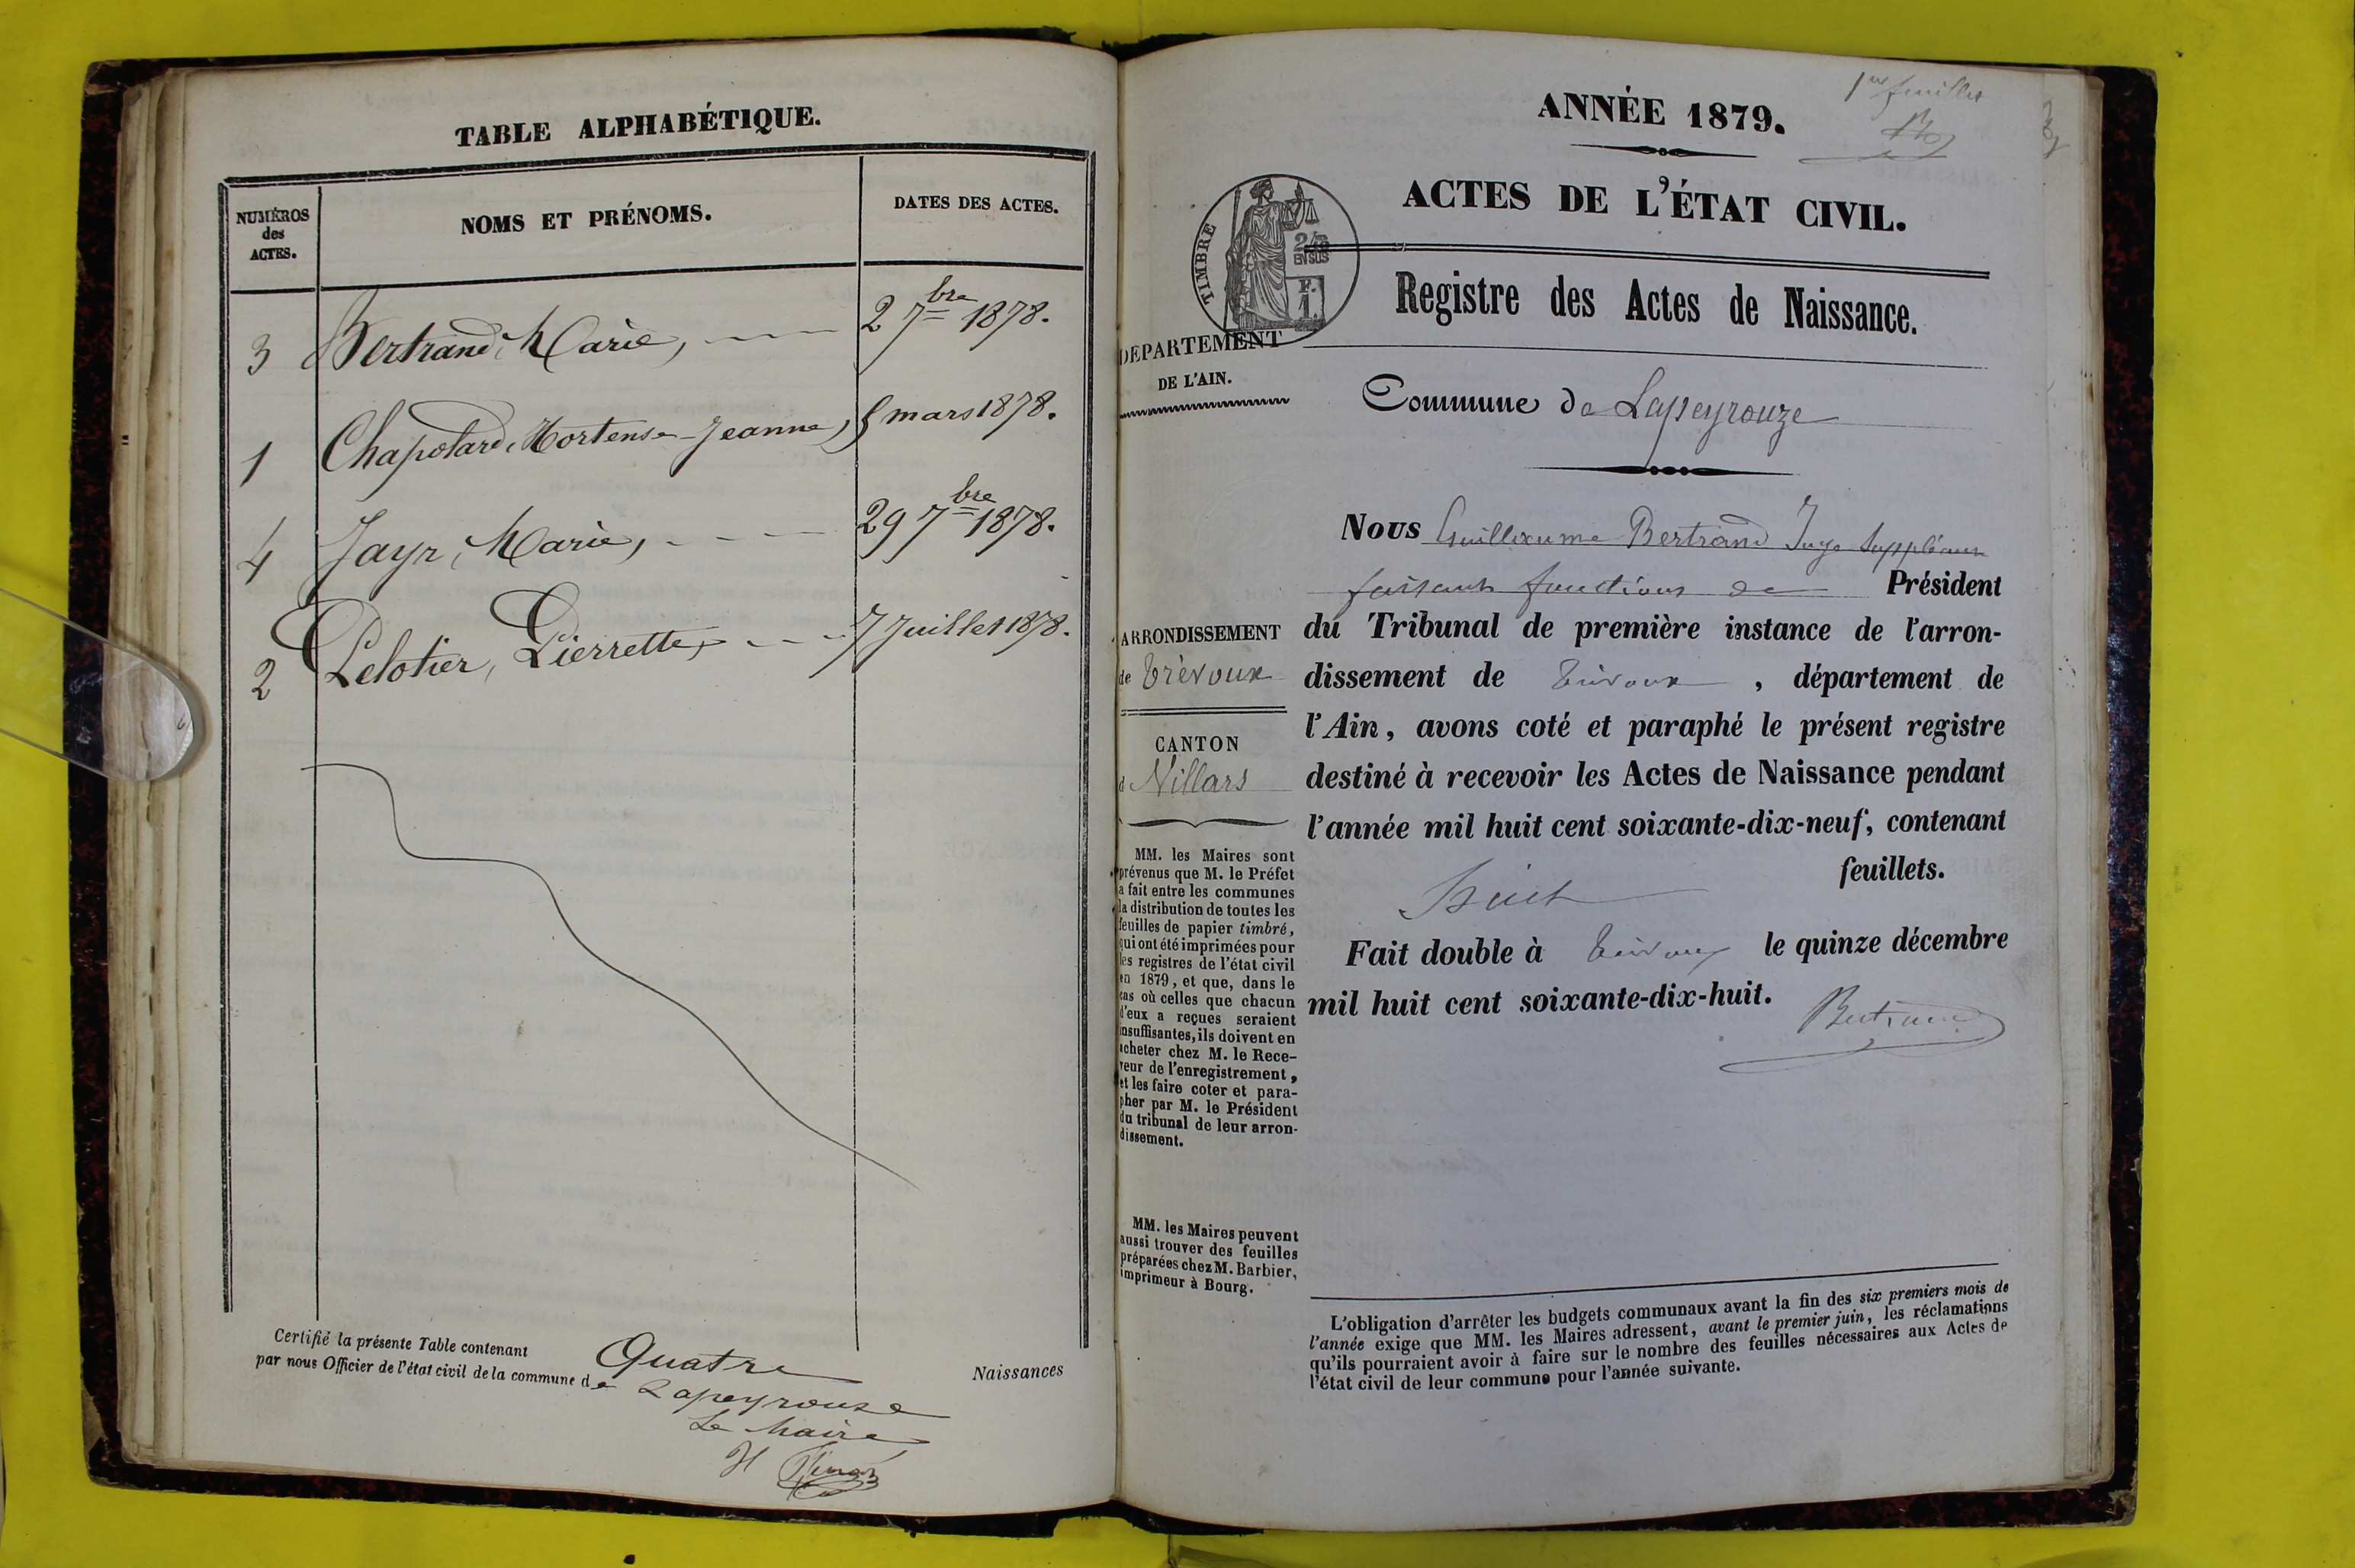 TABLE ALPHABÉTIQUE.
NUMÉROS
des
ACTES.
NOMS ET PRÉNOMS.
DATES DES ACTES.
3 Bertrand, Marie, 2 7bre 1878.
1 Chapolard, Hortense-Jeanne, 5 mars 1878.
4 Jayr, Marie, 29 7bre 1878.
2 Pelotier, Pierrette, 7 Juillet 1878.
Certifié la présente Table contenant Quatre Naissances
par nous Officier de l'état civil de la commune de Lapeyrouse
Le Maire
H
1er feuillet
ANNÉE 1879.
ACTES DE L'ÉTAT CIVIL.
TIMBRE
2/10
EN SUS
F.
1.
Registre des Actes de Naissance.
DÉPARTEMENT
DE L'AIN.
Commune de Lapeyrouze
ARRONDISSEMENT
de Trévoux
CANTON
d Villars
MM. les Maires sont
prévenus que M. le Préfet
a fait entre les communes
la distribution de toutes les
feuilles de papier timbré,
qui ont été imprimées pour
les registres de l'état civil
en 1879, et que, dans le
cas où celles que chacun
d'eux a reçues seraient
insuffisantes, ils doivent en
acheter chez M. le Rece-
veur de l'enregistrement,
et les faire coter et para-
pher par M. le Président
du tribunal de leur arron-
dissement.
MM. les Maires peuvent
aussi trouver des feuilles
préparées chez M. Barbier,
imprimeur à Bourg.
Nous Guillaume Bertrand Juge Suppléant
faisant fonctions de Président
du Tribunal de première instance de l'arron-
dissement de Trévoux, département de
l'Ain, avons coté et paraphé le présent registre
destiné à recevoir les Actes de Naissance pendant
l'année mil huit cent soixante-dix-neuf, contenant
huit feuillets.
Fait double à Trévoux le quinze décembre
mil huit cent soixante-dix-huit.
Bertrand
L'obligation d'arrêter les budgets communaux avant la fin des six premiers mois de
l'année exige que MM. les Maires adressent, avant le premier juin, les réclamations
qu'ils pourraient avoir à faire sur le nombre des feuilles nécessaires aux Actes de
l'état civil de leur commune pour l'année suivante.